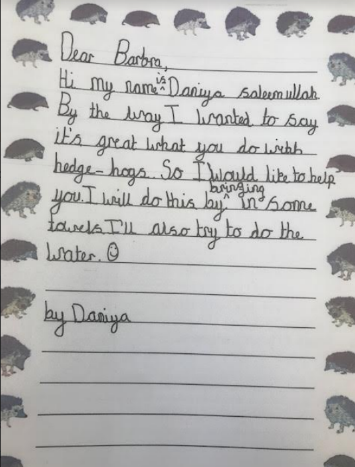 Dear Barbra,
Hi my name is Daniya saleemullah
By the way I wanted to say
it's great what you do with
hedge-hogs. So I would like to help
you. I will do this by bringing in some
towels. I'll also try to do the
water. ☺
by Daniya